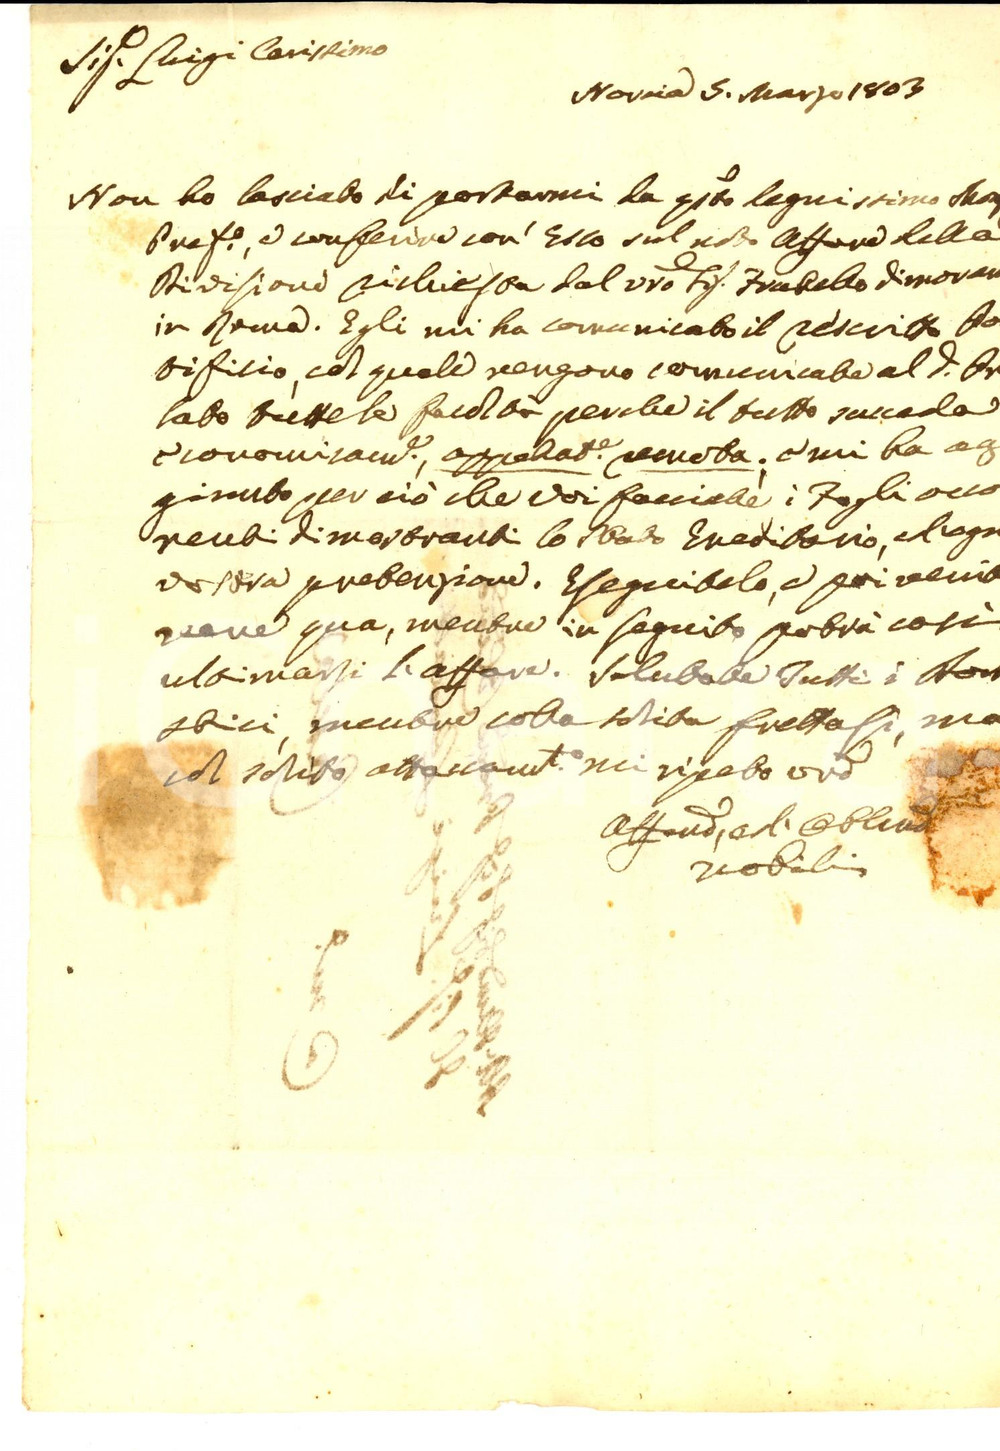 Sig.r Luigi Carissimo
Norcia 5. Marzo 1803
Non ho lasciato di portarmi da q.sto degnissimo Mon
Pref.o, e conferire con' Esso sul noto Affare della
Divisione richiesta dal vro Sig. Fratello dimoran
in Roma. Egli mi ha comunicato il rescritto Po
tificio, col quale vengono comunicate al d. Pr
lato tutte le facoltà perche il tutto succeda
economicam.e, appellat.e remota; e mi ha ag
giunto per ciò che voi facciate i Fogli occo
renti dimostranti lo Stato Ereditario, e l'ogn
vostra pretenzione. Eseguitelo, e poi venit
qua, mentre in seguito potrà così
ultimarsi l'affare. Salutate Tutti i Dom
stici, mentre colla solita fretta sì, ma
col solito attaccam.to mi ripeto vro
Affmo, ed Obblmo
Nobili